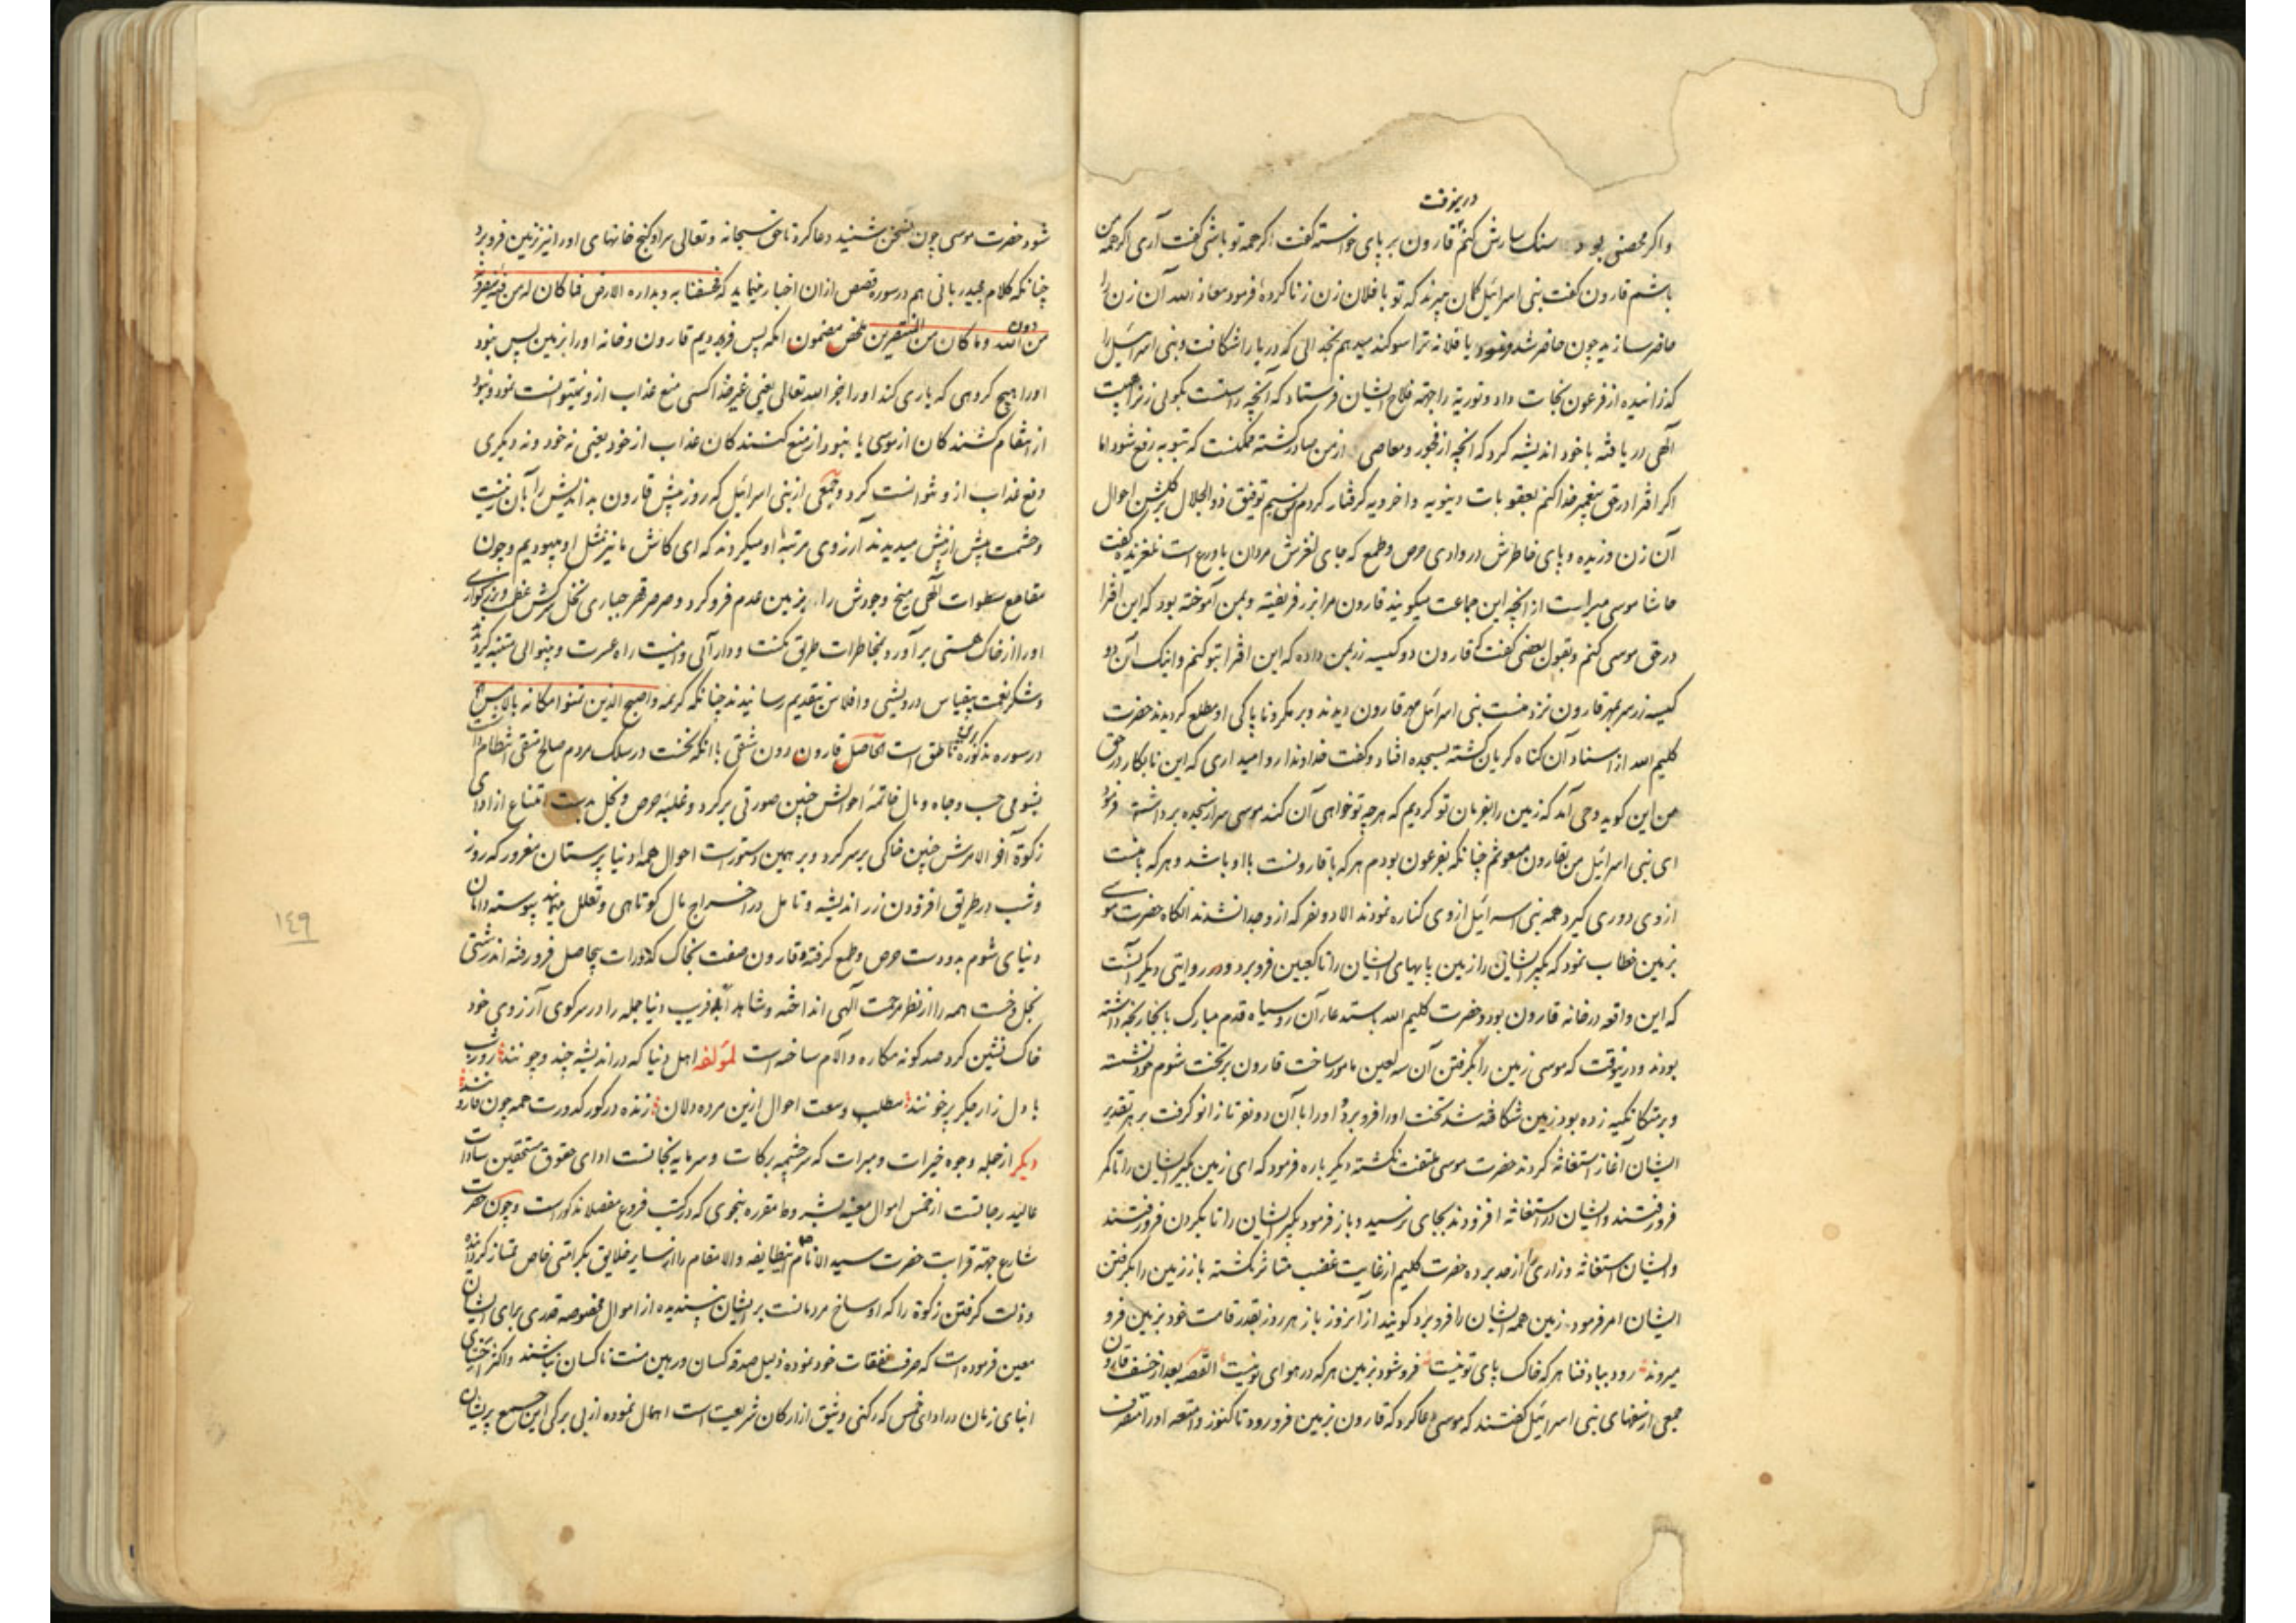 درینوقت
و اکر محصنی بود سنکسارش کنم قارون بر پای خواسته کفت اکرچه تو باشی کفت آری اکرچه من
باشم قارون کفت بنی اسرائیل کمان میبرند که تو با فلان زن زنا کردهٔ فرمود معاذ الله آن زن را
حاضر سازید چون حاضر شد فرمود یا فلانه ترا سوکند میدهم بخدائی که دریا را شکافت و بنی اسرائیل را
کذرانیده از فرعون نجات داد و توریة را جهة فلاح ایشان فرستاد که آنچه راست بکوئی زن را هیبت
آلهی دریافته با خود اندیشه کرد که آنچه از فجور و معاصی از من صادر کشته ممکنست که بتوبه رفع شود اما
اکر افترا در حق پیغمبر خدا کنم بعقوبات دنیویه و اخرویه کرفتار کردم پس نسیم توفیق ذو الجلال بر کلشن احوال
آن زن وزیده و پای خاطرش در وادی حرص و طمع که جای لغزش مردان با ورع است نلغزیده کفت
حاشا موسی مبراست از آنچه این جماعت میکویند قارون مرا بزر فریفته و بمن آموخته بود که این افترا
در حق موسی کنم و بقول بعضی کفت که قارون دو کیسه زر بمن داده که این افترا بتو کنم و اینک آن دو
کیسه زر سر بمهر قارون نزد منست بنی اسرائیل مهر قارون دیدند و بر مکر و ناپاکی او مطلع کردیدند حضرت
کلیم الله از اسناد آن کناه کریان کشته بسجده افتاد و کفت خداوندا روا میداری که این نابکار در حق
من این کوید وحی آمد که زمین را بفرمان تو کردیم که هرچه تو خواهی آن کند موسی سر از سجده برداشته فرمود
ای بنی اسرائیل من بقارون مبعوثم چنانکه بفرعون بودم هر که با قارونست با او باشد و هر که با منست
از وی دوری کیرد همه بنی اسرائیل از وی کناره نمودند الا دو نفر که از و جدا نشدند آنکاه حضرت موسی
بزمین خطاب نمود که بکیر ایشان را زمین پایهای ایشان را تا کعبین فرو برد و در روایتی دیکر آنست
که این واقعه در خانه قارون بود و حضرت کلیم الله باستدعا آن روسیاه قدم مبارک بآنجا رنجه داشته
بودند و درینوقت که موسی زمین را بکرفتن آن سه لعین مامور ساخت قارون بر تخت شوم خود نشسته
و بر متکا تکیه زده بود زمین شکافته شد تخت او را فرو برد و او را با آن دو نفر تا زانو کرفت بر هر تقدیر
ایشان آغاز استغاثه کردند حضرت موسی ملتفت نکشته دیکر باره فرمود که ای زمین بکیر ایشان را تا کمر
فرو رفتند و ایشان در استغاثه افزودند بجای نرسید و باز فرمود بکیر ایشان را تا بکردن فرو رفتند
و ایشان استغاثه و زاری را از حد برده حضرت کلیم از غایت غضب متاثر نکشته باز زمین را بکرفتن
ایشان امر فرمود زمین همه ایشان را فرو برد کویند از آنروز باز هر روز بقدر قامت خود بزمین فرو
میروند رود بباد فنا هر که خاک پای تو نیست فرو شود بزمین هر که در هوای تو نیست القصه بعد از خسف قارون
جمعی از سفهای بنی اسرائیل کفتند که موسی دعا کرد که قارون بزمین فرو رود تا کنوز و امتعه او را متصرف
شود حضرت موسی چون این سخن شنید دعا کرد تا حق سبحانه و تعالی سرا و کنج خانهای او را نیز زمین فرو برد
چنانکه کلام مجید ربانی هم در سوره قصص ازان اخبار مینماید که فخسفنا به و بداره الارض فما کان له من فئة ینصرونه
من دون الله و ما کان من المنتصرین ملخص مضمون انکه پس فرو بردیم قارون و خانه او را بزمین پس نبود
او را هیچ کروهی که یاری کند او را بجز الله تعالی یعنی غیر خدا کسی منع عذاب از و نمیتوانست نمود و نبود
از انتقام کشندکان از موسی یا نبود از منع کنندکان عذاب از خود یعنی نه خود و نه دیکری
دفع عذاب از و توانست کرد و جمعی از بنی اسرائیل که روز پیش قارون بداندیش را بآن زینت
و حشمت بیش از پیش میدیدند آرزوی مرتبهٔ او میکردند که ای کاش ما نیز مثل او میبودیم و چون
مقامع سطوات آلهی میخ وجودش را بزمین عدم فرو کرد و صرصر قهر جباری نخل سرکش عظمت و بزرکواری
او را از خاک هستی برآورد بمخاطرات طریق مکنت و دارائی و امنیت راه عسرت و بینوائی متنبه کردیده
و شکر نعمت بیقیاس درویشی و افلاس بتقدیم رسانیدند چنانکه کریمه و اصبح الذین تمنوا مکانه بالامس
در سوره مذکوره ناطق است الحاصل قارون دون شقی با انکه نخست در سلک مردم صالح متقی انتظام داشت
بشومی حب و جاه و مال خاتمهٔ احوالش چنین صورتی بر کرد و غلبه حرص و بخل بدست امتناع از ادای
زکوة آخر الامرش چنین خاکی بر سر کرد و بر همین دستور است احوال همه دنیا پرستان مغرور که روز
و شب در طریق افزودن زر اندیشه و تامل در اخراج مال کوتاهی و تعلل مینمایند پیوسته دامان
دنیای شوم بدو دست حرص و طمع کرفته و قارون صفت بخاک کدورات بیحاصل فرو رفته اند زشتی
بخل و خست همه را از نظر مرحمت آلهی انداخته و شاهد ابله فریب دنیا جمله را در سر کوی آرزوی خود
خاک نشین کرد صد کونه مکاره و آلام ساخته است لمؤلفه اهل دنیا که در اندیشه چند و چونند روز و شب
با دل زار و جکر پر خونند مطلب وسعت احوال ازین مرده دلان زنده در کور کدورت همه چون قارونند
دیکر از جمله وجوه خیرات و مبرات که سرچشمه برکات و سرمایه نجاتست ادای حقوق مستحقین سادات
عالیدرجاتست از خمس اموال معینه بشروط مقرره بنحوی که در کتب فروع مفصلا مذکور است و چون حضرت
شارع جهة قرابت حضرت سید الانام اینطایفه والا مقام را از سایر خلایق بکرامتی خاص ممتاز کردانیده
و ذلت کرفتن زکوة را که اوساخ مردمانست بر ایشان نپسندیده از اموال مخصوصه قدری برای ایشان
معین فرموده است که صرف نفقات خود نموده ذلیل صدقه کسان و رهین منت ناکسان نباشند و اکثر اغنیای
ابنای زمان در ادای خمس که رکنی وثیق از ارکان شریعت است اهمال نموده از بی برکی این جمع پریشان
١٤٩